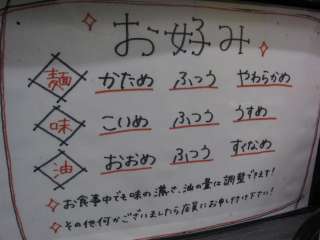 お好み
麺 かため ふつう やわらかめ
味 こいめ ふつう うすめ
油 おおめ ふつう すくなめ
お食事中でも味の濃さ、油の量は調整できます!
その他何かございましたら店員にお申し付け下さい!